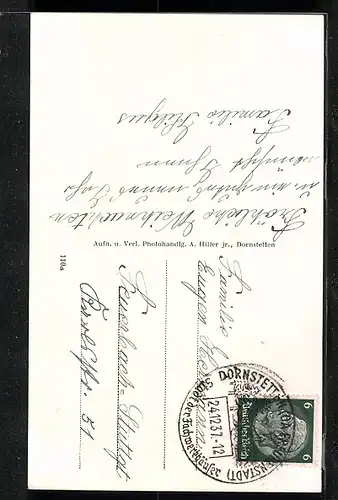 Fröhliche Weihnachten
u. ein gutes neues Jahr
wünscht Ihnen
Familie
Aufn. u. Verl. Photohandlg. A. Hiller jr., Dornstetten
110a
Familie
Eugen
Feuerbach-Stuttgt
Karlstr. 51
DORNSTETTEN
24.12.37.-12
der Fachwerkhäuser
6 6
Deutsches Reich